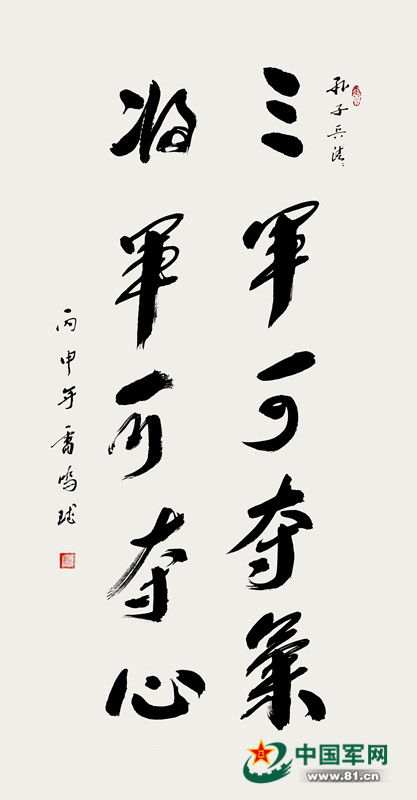 孙子兵法
三軍可夺氣
将軍可夺心
丙申年雷鸣球
中国军网
www.81.cn